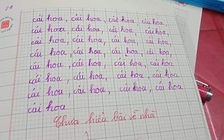 cái hoa, cái hoa, cái hoa, cái hoa
cái hoa, cái hoa, cái hoa, cái hoa
cái hoa, cái hoa, cái hoa, cái hoa
cái hoa, cái hoa, cái hoa, cái hoa
cái hoa, cái hoa, cái hoa, cái hoa
cái hoa, cái hoa, cái hoa, cái hoa
cái hoa, cái hoa, cái hoa, cái hoa
cái hoa
Chưa hiểu bài về nhà